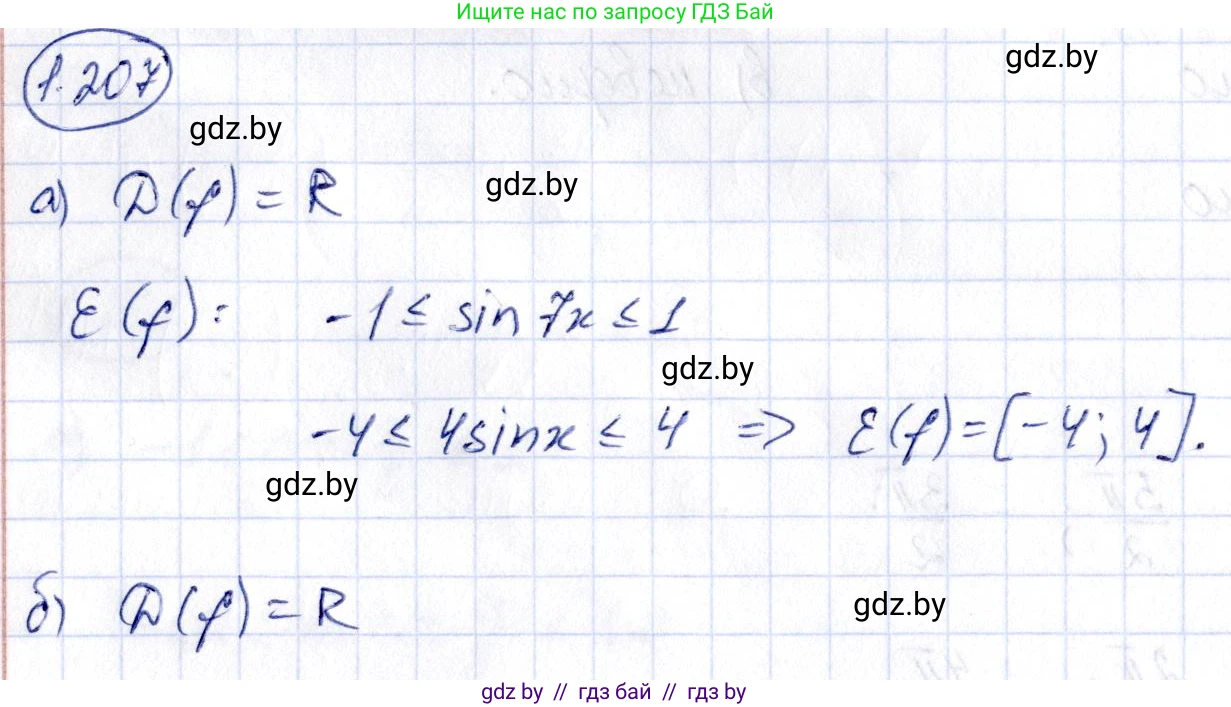 Ищите нас по запросу ГДЗ Бай
1.207
gdz.by
gdz.by
а) D(f) = R
gdz.by
E(f): -1 ≤ sin 7x ≤ 1
gdz.by
-4 ≤ 4sinx ≤ 4 => E(f)=[-4; 4].
gdz.by
б) D(f) = R
gdz.by
gdz by // гдз бай // гдз by